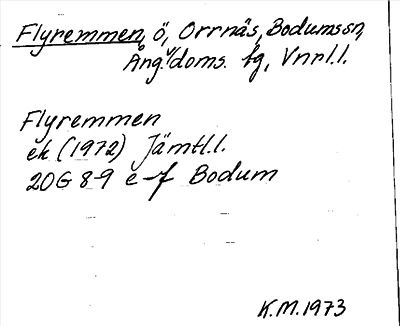 Flyremmen, ö, Orrnäs, Bodumssn,
Ång.doms. tg, Vnrl.l.
Flyremmen
ek (1972) Jämtl.l.
20G 8-9 e-f Bodum
K.M. 1973